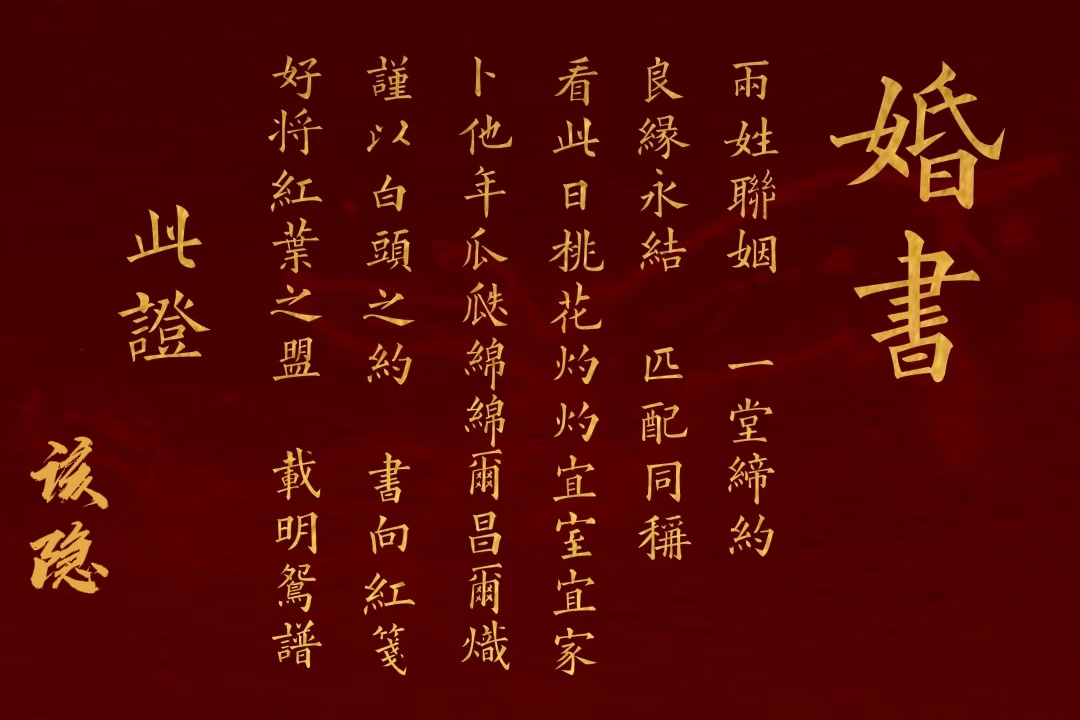 婚書
兩姓聯姻 一堂締約
良緣永結 匹配同稱
看此日桃花灼灼宜室宜家
卜他年瓜瓞綿綿爾昌爾熾
謹以白頭之約 書向紅箋
好将紅葉之盟 載明鴛譜
此證
该隐